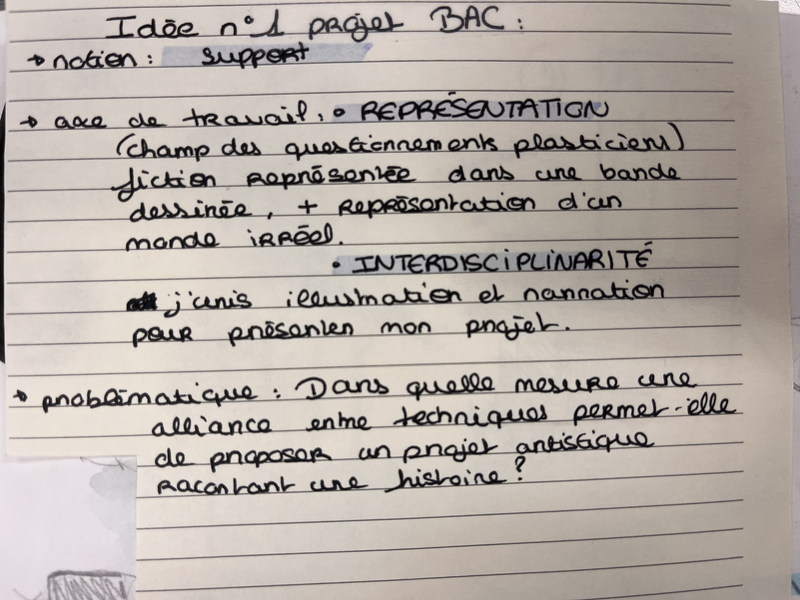 Idée n°1 projet BAC :
→ notion : support
→ axe de travail : • REPRÉSENTATION
(champ des questionnements plasticiens)
fiction représentée dans une bande
dessinée, + représentation d'un
monde irréel.
• INTERDISCIPLINARITÉ
j'unis illustration et narration
pour présenter mon projet.
→ problématique : Dans quelle mesure une
alliance entre techniques permet-elle
de proposer un projet artistique
racontant une histoire ?